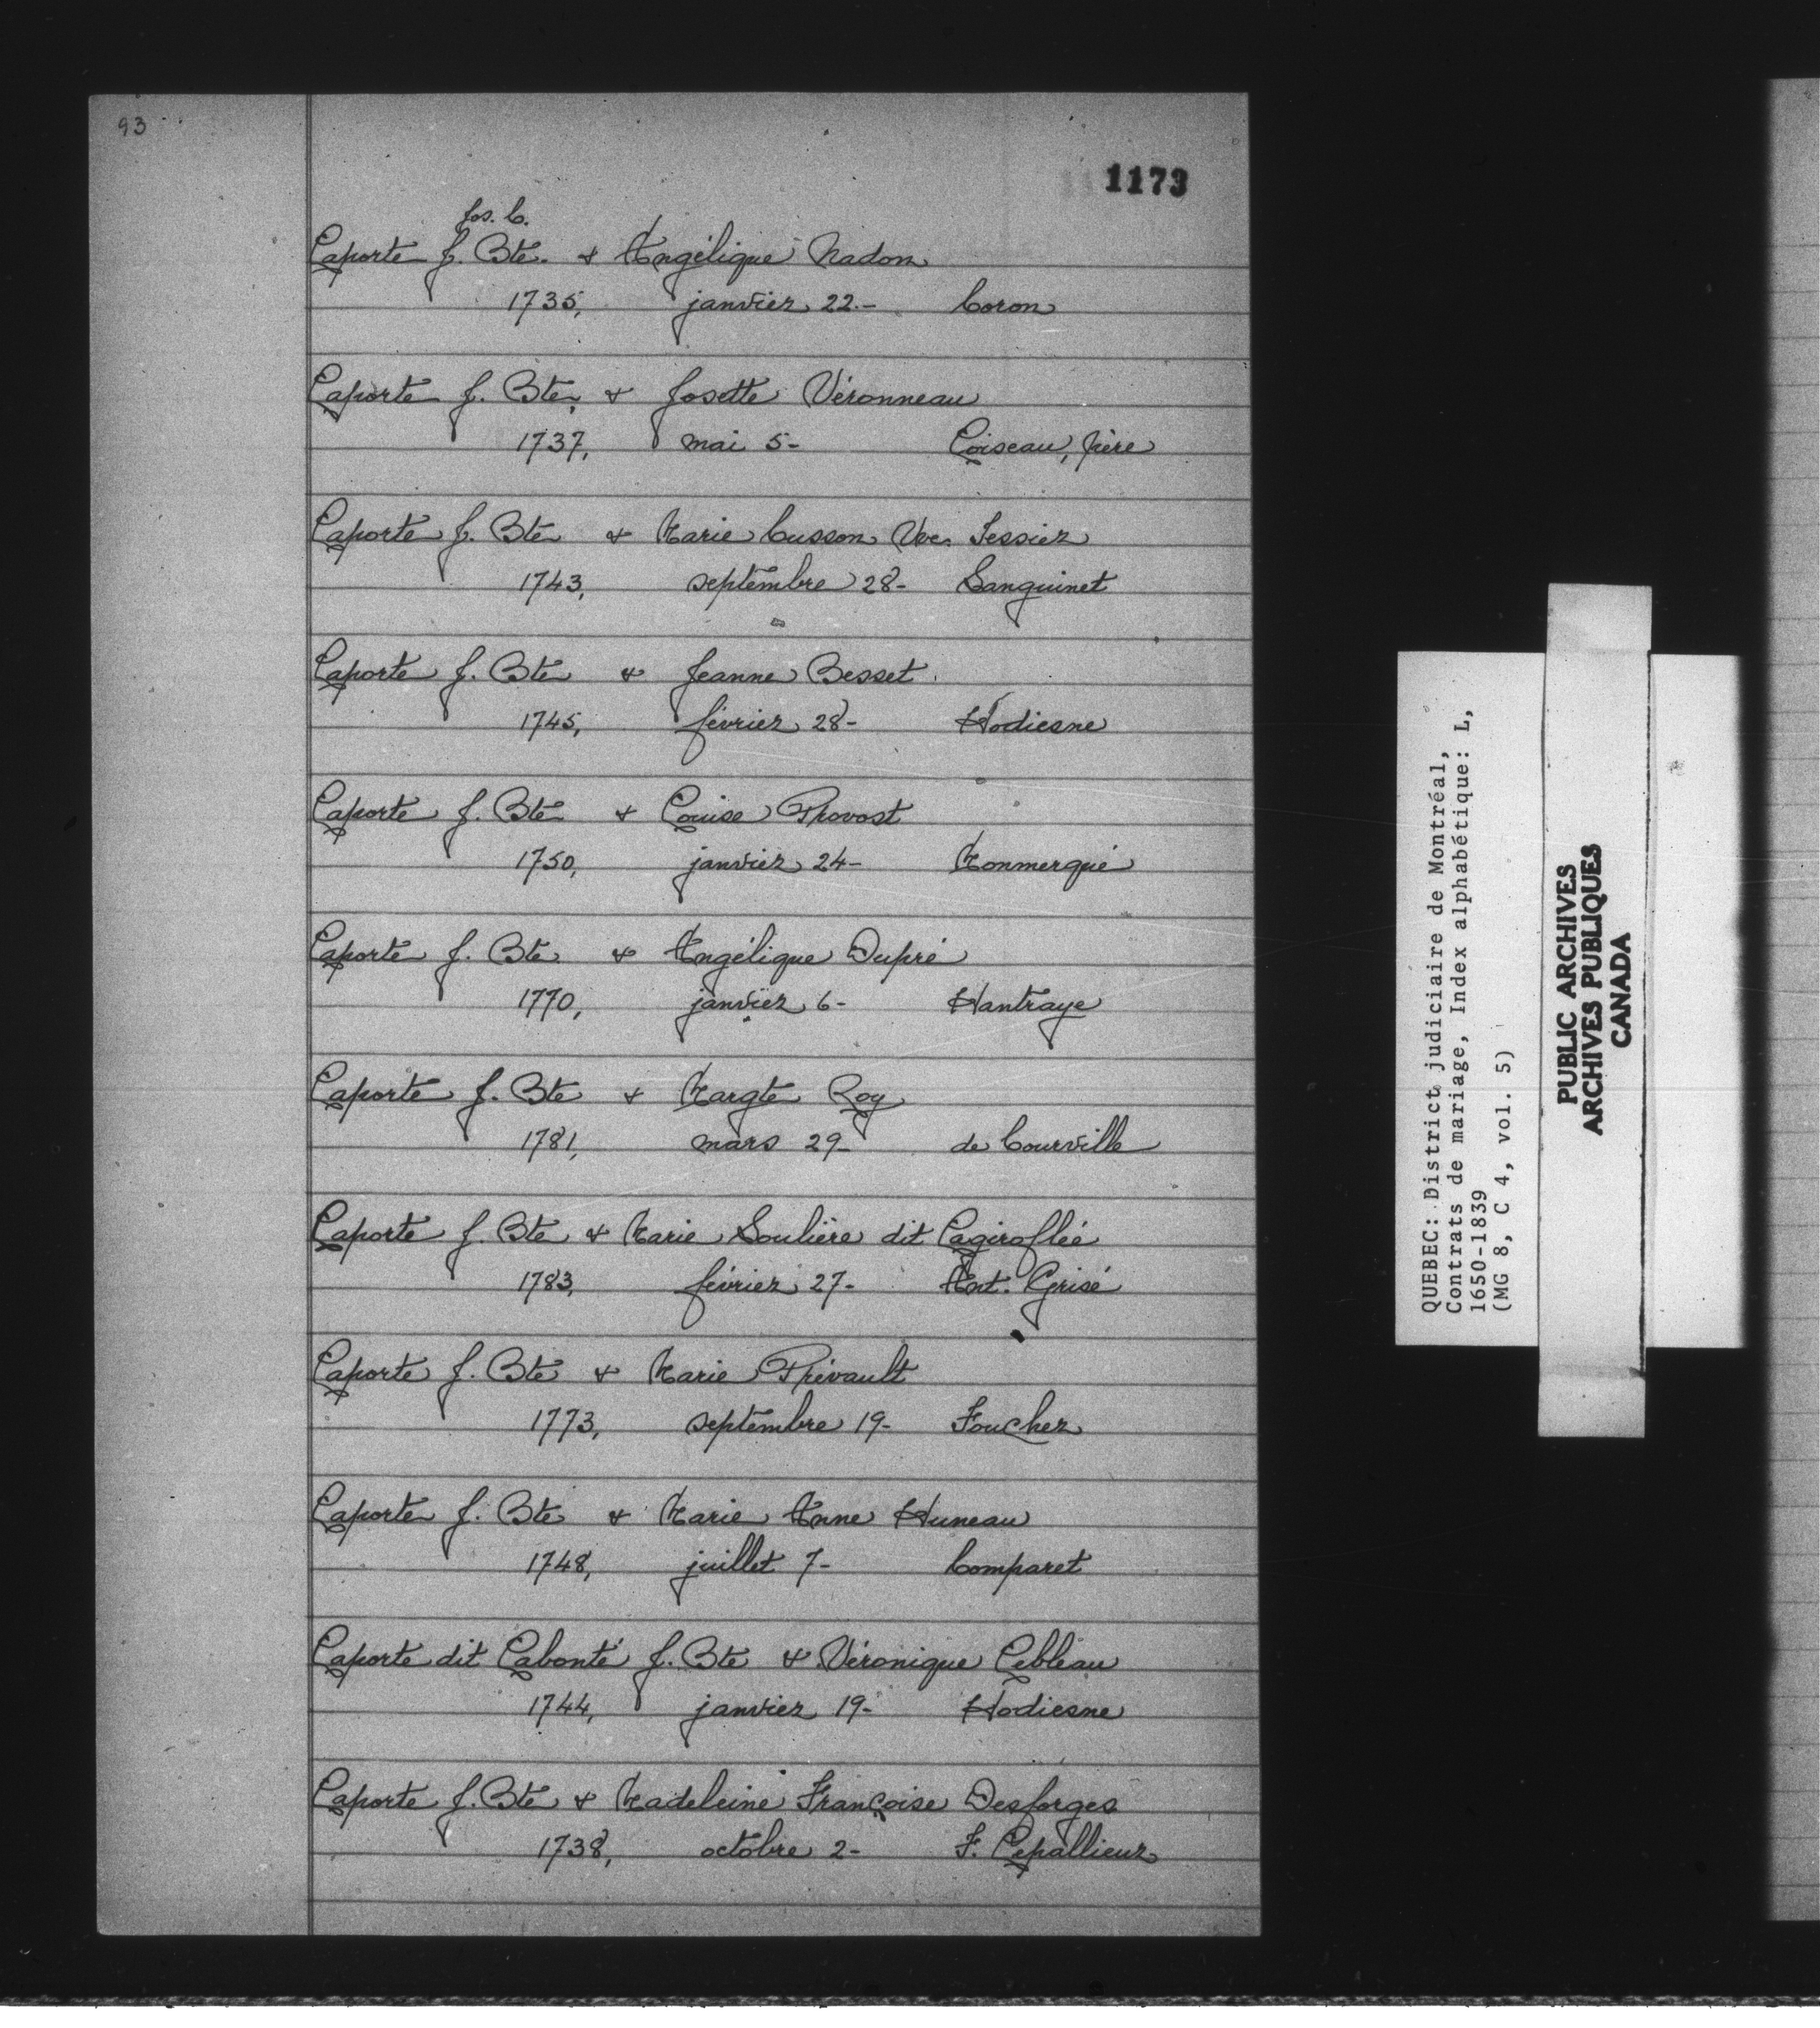 93
1173
Jos. C.
Laporte J. Bte. & Angélique Nadon
1735, janvier 22.- Coron
Laporte J. Bte, & Josette Véronneau
1737, mai 5- Loiseau, père
Laporte J. Bte & Marie Cusson Vve. Tessier
1743, septembre 28- Sanguinet
Laporte J. Bte & Jeanne Besset.
1745, février 28- Hodiesne
Laporte J. Bte & Louise Provost
1750, janvier 24- Monmerqué
Laporte J. Bte. & Angélique Dupré
1770, janvier 6- Hantraye
Laporte J. Bte & Margte Roy
1781, mars 29- de Courville
Laporte J. Bte & Marie Soulière dit Lagiroflée
1783, février 27- Ant. Grisé
Laporte J. Bte & Marie Prévault
1773, septembre 19- Foucher
Laporte J. Bte & Marie Anne Huneau
1748, juillet 7- Comparet
Laporte dit Labonté J. Bte & Véronique Lebleau
1744, janvier 19- Hodiesne
Laporte J. Bte & Madeleine Françoise Desforges
1738, octobre 2- F. Lepallieur
QUEBEC: District judiciaire de Montréal,
Contrats de mariage, Index alphabétique: L,
1650-1839
(MG 8, C 4, vol. 5)
PUBLIC ARCHIVES
ARCHIVES PUBLIQUES
CANADA